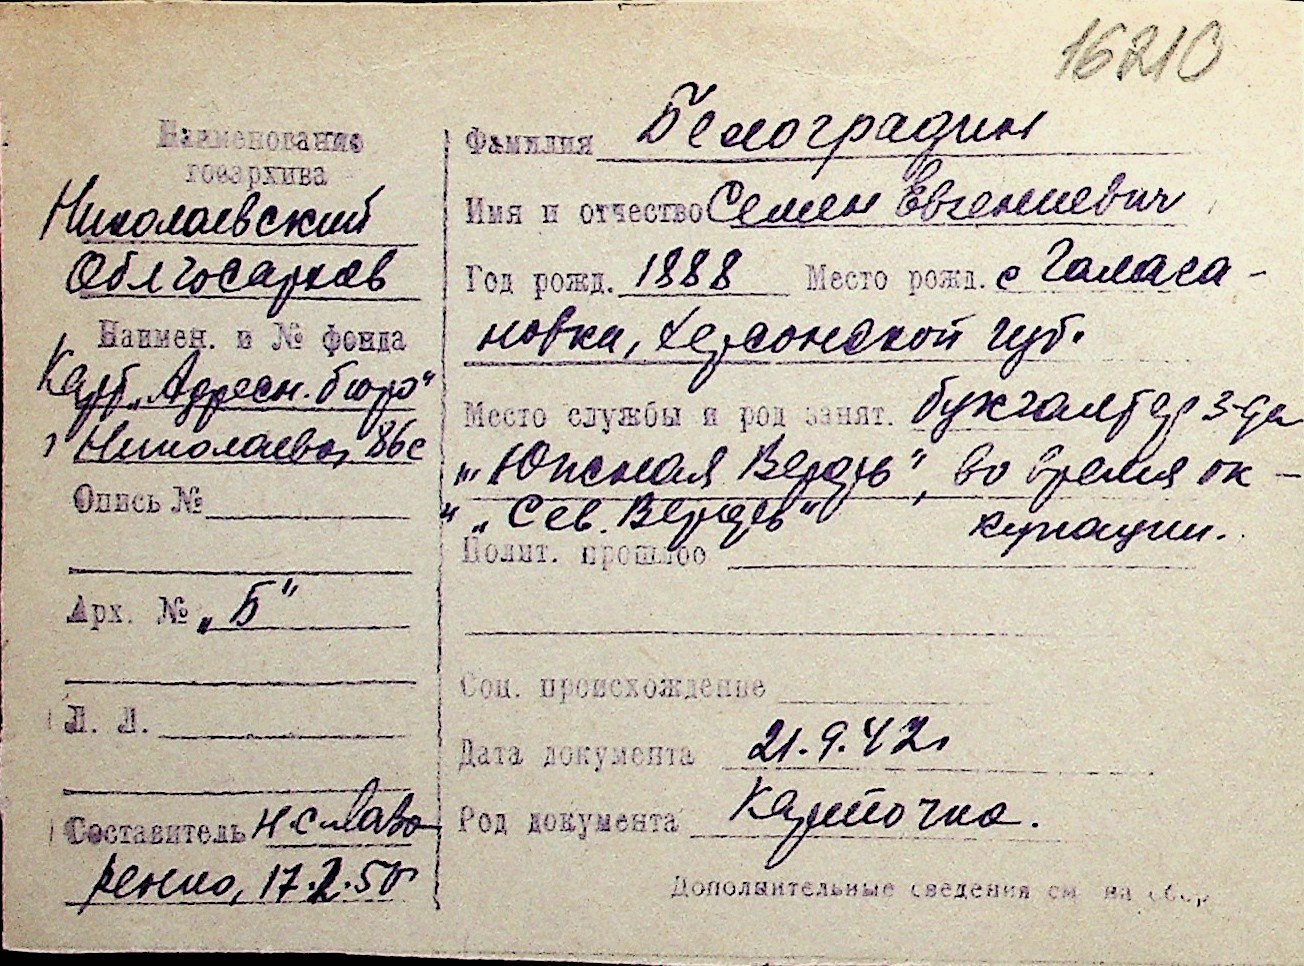 16210
Наименование
госархива
Николаевский
Облгосархив
Наимен. и № фонда
Карт. „Адресн. бюро"
г Николаева, 86с
Опись №
Арх. № „Б"
Л. Л.
Составитель Н. Славо
ренко, 17.2.50
Фамилия Белоградин
Имя и отчество Семен Евгениевич
Год рожд. 1888 Место рожд. с Галага-
новка, Херсонской губ.
Место службы и род занят. бухгалтер з-да
„Южная Верфь", во время ок-
" „Сев. Верфь" купации.
Полит. прошлое
Соц. происхождение
Дата документа 21.9.42г
Род документа Карточка.
Дополнительные сведения см на обор